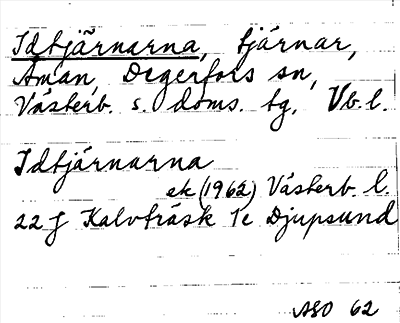 Idtjärnarna, tjärnar,
Åman, Degerfors sn,
Västerb. s. doms. tg, Vb. l.
Idtjärnarna
ek (1962) Västerb. l.
22 J Kalvträsk 1e Djupsund
ASO 62